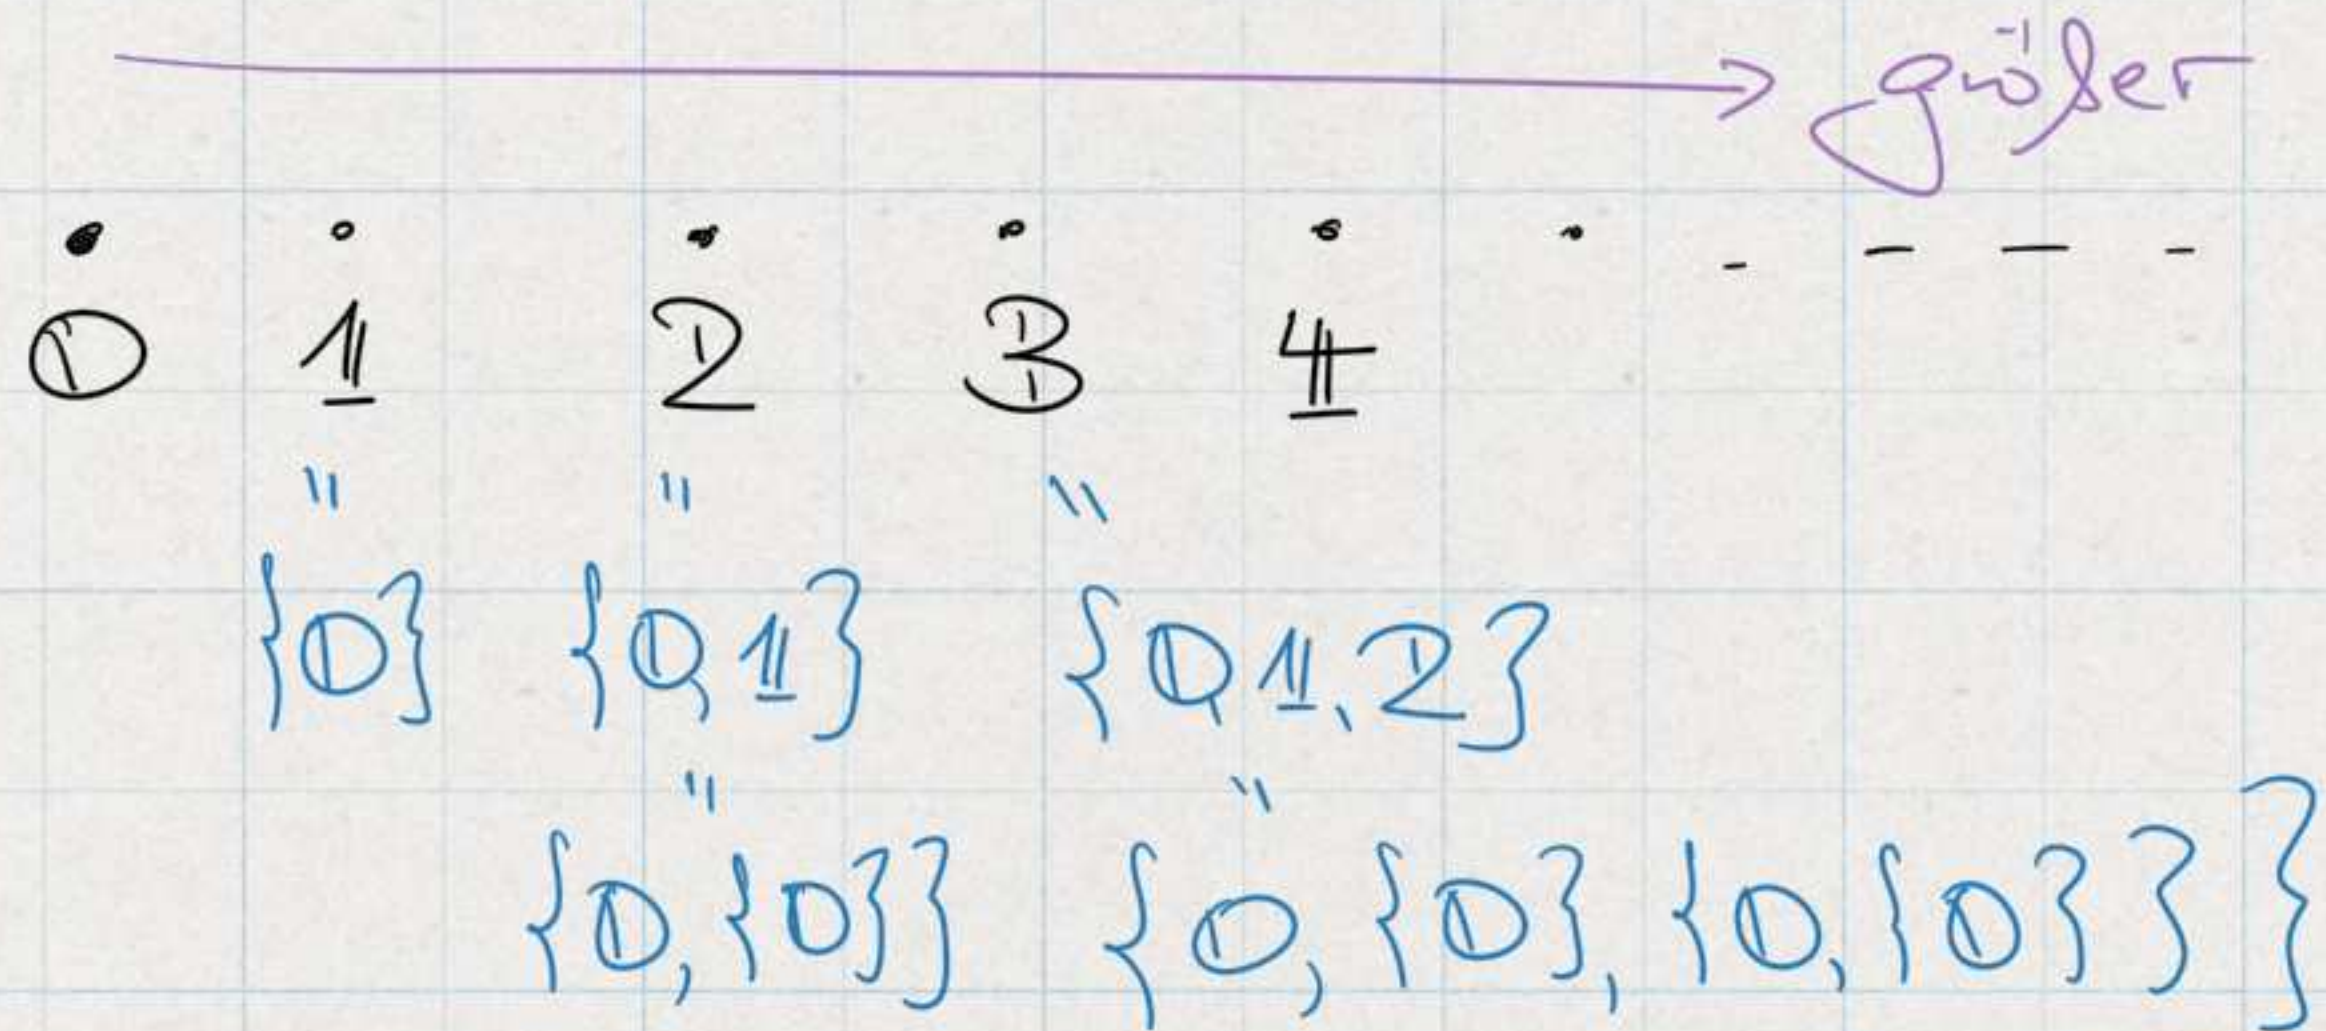 größer
𝟘 𝟙 𝟚 𝟛 𝟜
" " "
{𝟘} {𝟘, 𝟙} {𝟘, 𝟙, 𝟚}
" "
{𝟘, {𝟘}} {𝟘, {𝟘}, {𝟘, {𝟘}}}